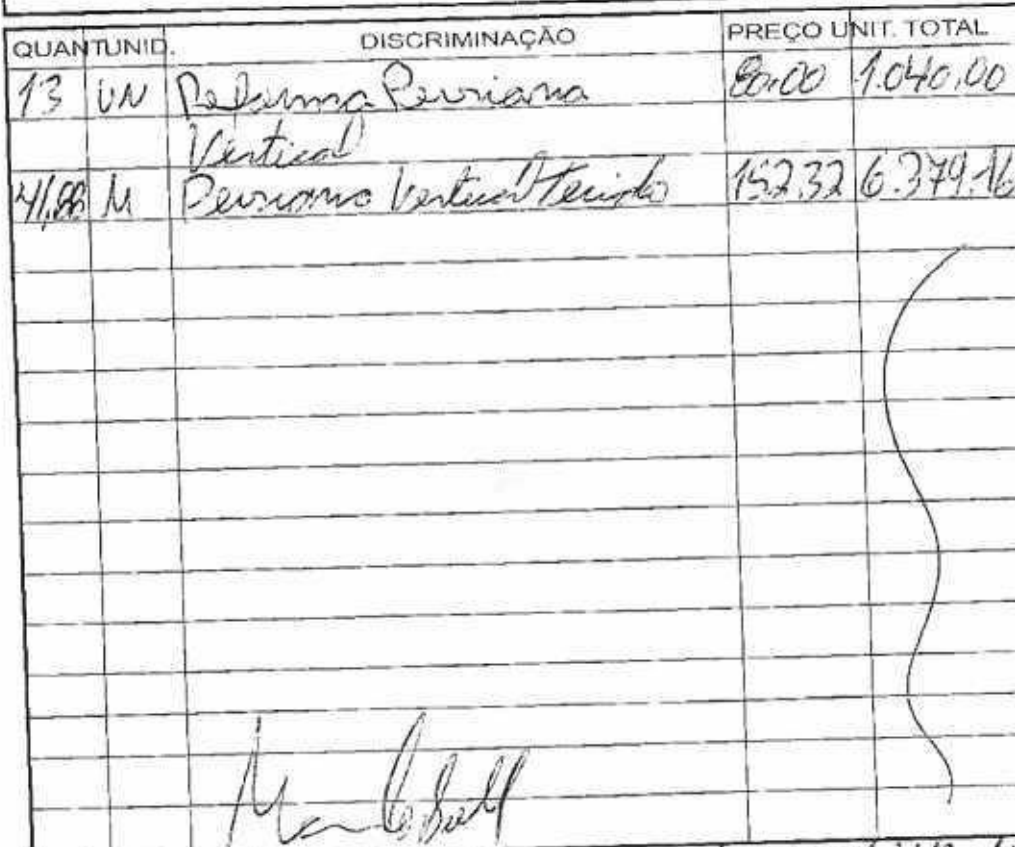 QUANT UNID. DISCRIMINAÇÃO PREÇO UNIT. TOTAL
13 UN Reforma Persiana 80,00 1.040,00
Vertical
41,88 M Persiana Vertical Tecido 152,32 6.379,16